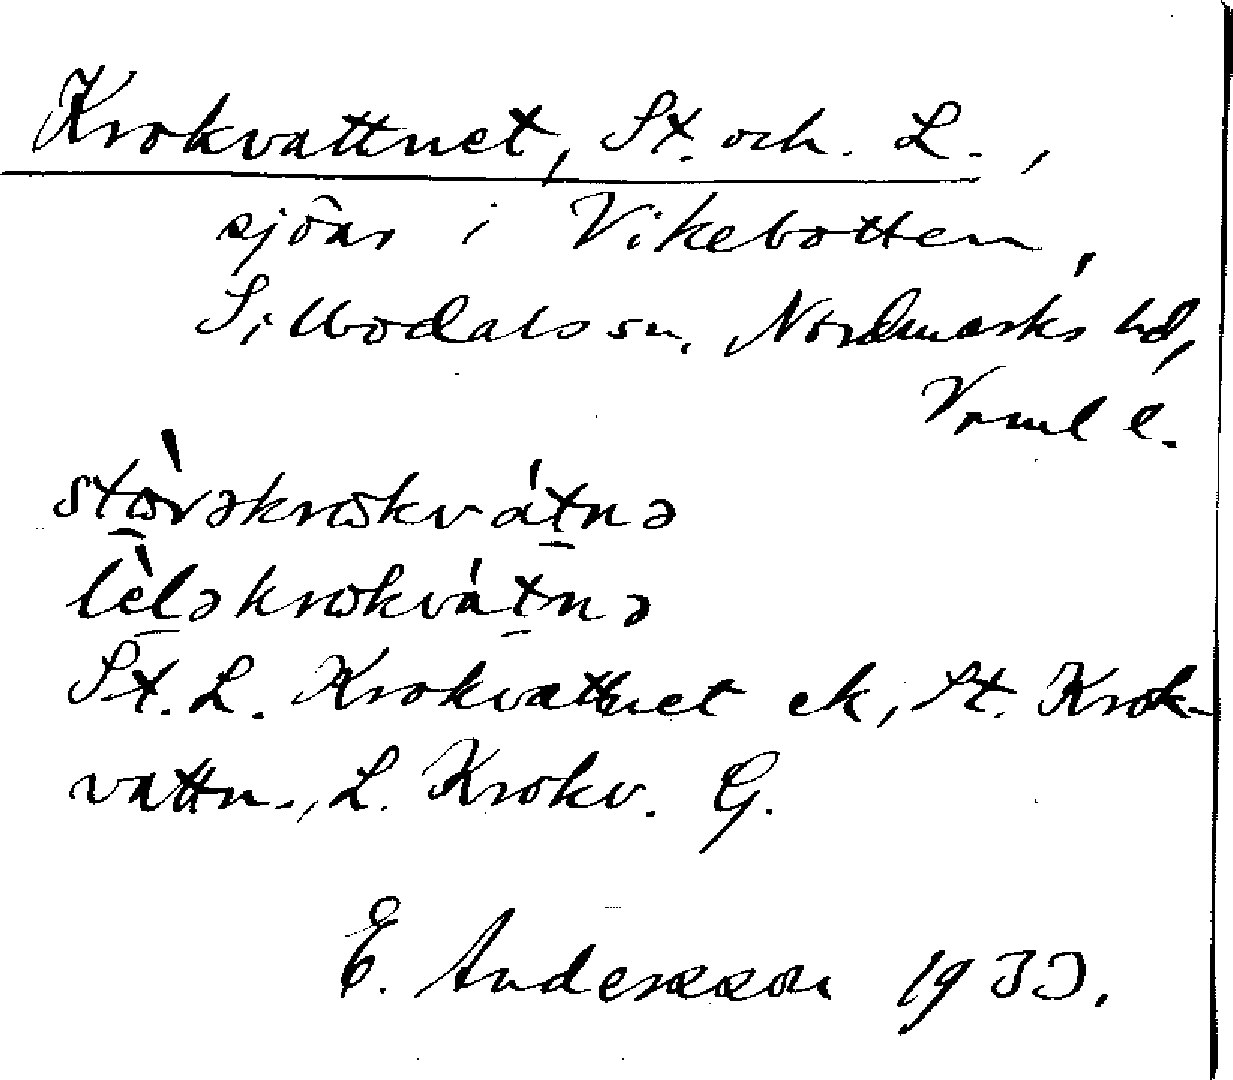 Krokvattnet, St. och. L.,
sjöar i Vikebotten,
Sillbodals sn, Nordmarks hd,
Vrml l.
stòrəkrokvátnə
lèləkrokvátnə
St. L. Krokvattnet ek, St. Krok-
vattn., L. Krokv. G.
E. Andersson 1933.